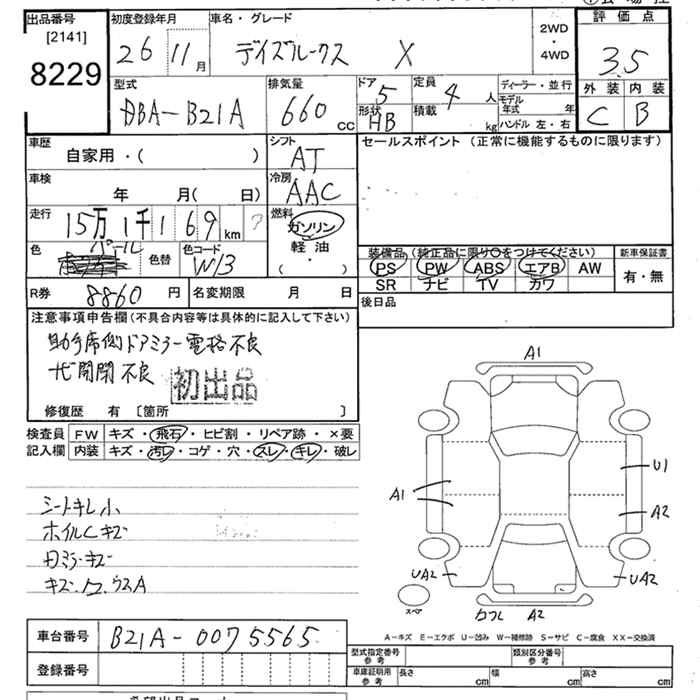 出品番号 初度登録年月 車名・グレード 2WD・4WD 評価点
[2141]
8229 26 11月 デイズルークス X 3.5
型式 排気量 ドア 5 定員 4人 ディーラー・並行 外装 内装
DBA-B21A 660cc 形状 HB 積載 kg モデル年式 年 C B
ハンドル 左・右
車歴 シフト セールスポイント (正常に機能するものに限ります)
自家用・( ) AT
車検 冷房
年 月( 日) AAC
走行 燃料
15万1千169km ? ガソリン
色 パール 色替 色コード 軽油
W13 (・)
装備品(純正品に限り○をつけてください) 新車保証書
PS PW ABS エアB AW 有・無
SR ナビ TV カワ
R券 8860円 名変期限 月 日 後日品
注意事項申告欄(不具合内容等は具体的に記入して下さい)
助手席側ドアミラー電格不良
開閉不良 初出品
修復歴 有 [箇所 ]
検査員 FW キズ・飛石・ヒビ割・リペア跡・×要
記入欄 内装 キズ・汚レ・コゲ・穴・スレ・キレ・破レ
シートキレ小
ホイルCキズ
キズ
キズ ウスA
A1
U1
A1
A2
UA2
UA2
スペア
A2
A-キズ E-エクボ U-凹み W-補修跡 S-サビ C-腐食 XX-交換済
車台番号 B21A-0075565
登録番号
型式指定番号 参考 類別区分番号 参考
車庫証明用 参考 長さ cm 幅 cm 高さ cm